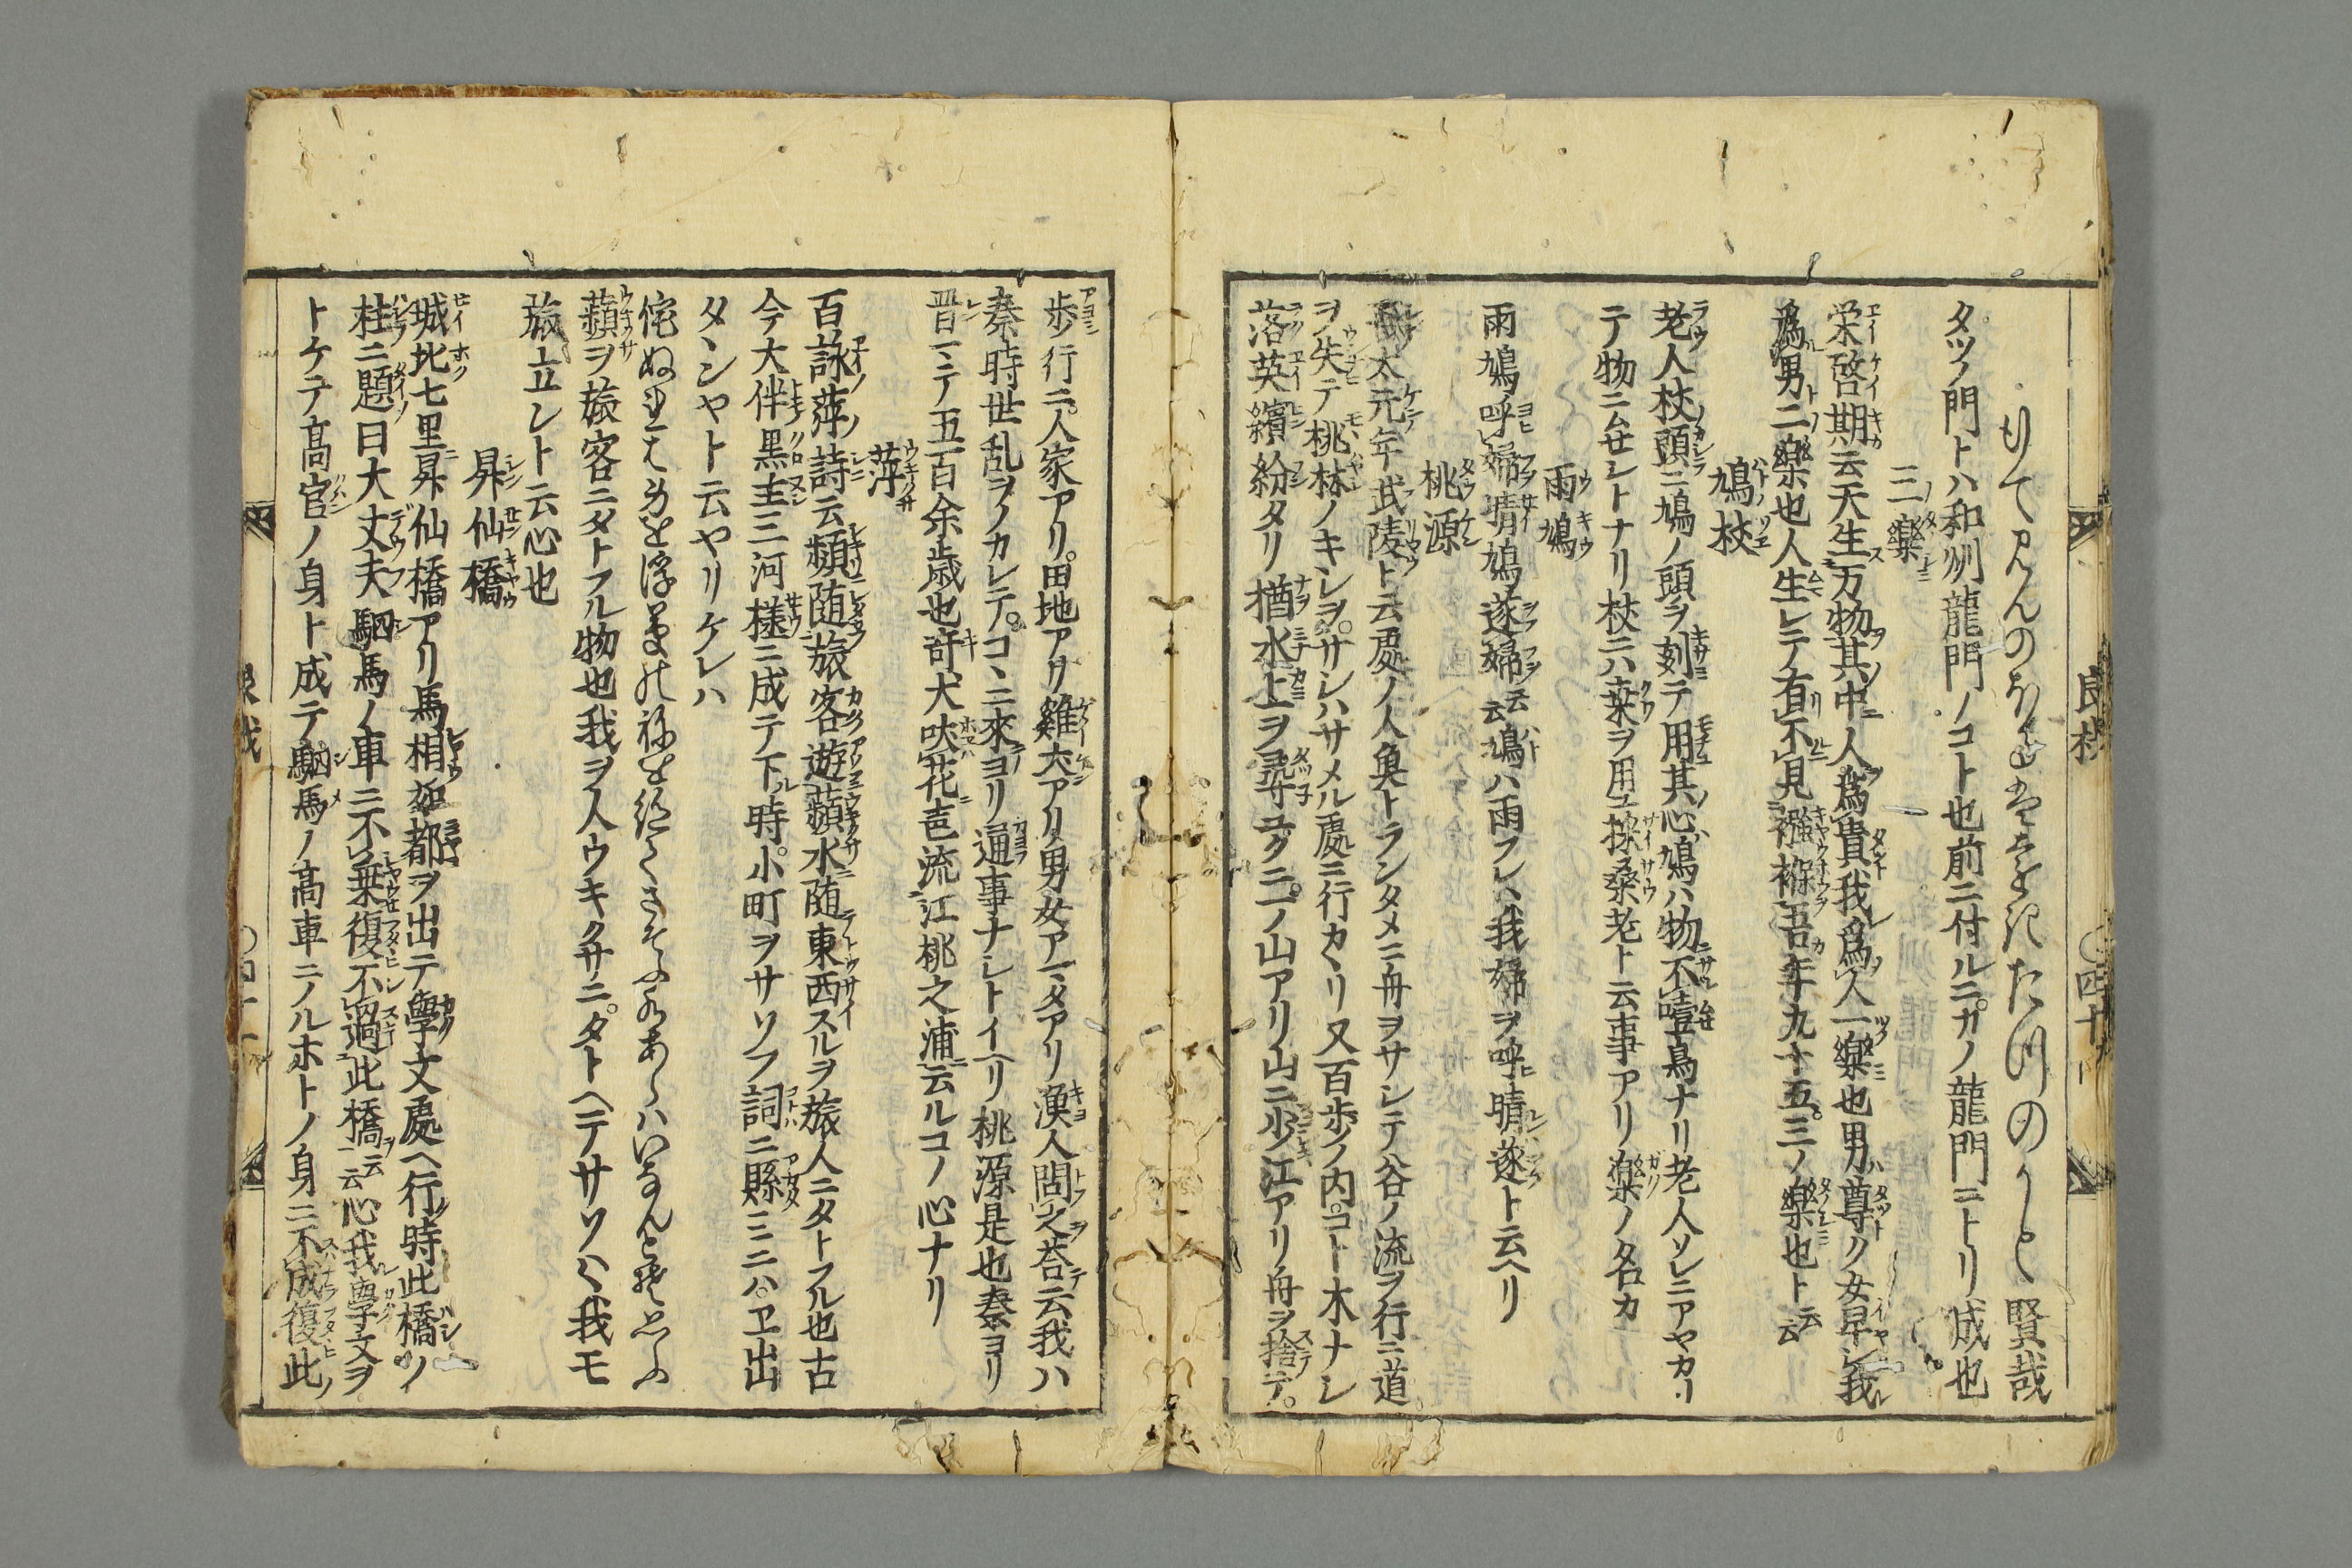 タツノ門トハ和州龍門ノコト也前ニ付ルニカノ龍門ニトリ成也
三樂
栄啓期云天生万物其中人爲貴我爲人一樂也男尊ク女卑シ我
爲男二樂也人生レテ有不見襁褓吾年九十五三ノ樂也ト云云
鳩杖
老人杖頭ニ鳩ノ頭ヲ刻テ用其心鳩ハ物不噎鳥ナリ老人ソレニアヤカリ
テ物ニムセシトナリ杖ニハ桒ヲ用ユ採桑老ト云事アリ樂ノ名カ
雨鳩
雨鳩呼婦晴鳩逐婦云云鳩ハ雨フレハ我婦ヲ呼晴逐ト云ヘリ
桃源
太元年武陵ト云處ノ人魚トランタメニ舟ヲサシテ谷ノ流ヲ行ニ道
ヲ失テ桃林ノキシヲサシハサメル處ニ行カヽリ又百歩ノ内コト木ナシ
落英繽紛タリ猶水上ヲ尋ユクニ一ノ山アリ山ニ少江アリ舟ヲ捨テ
歩行ニ人家アリ田地アリ雞犬アリ男女アマタアリ漁人問之荅云我ハ
秦時世乱ヲノカレテコヽニ來ヨリ通事ナシトイヘリ桃源是也秦ヨリ
晋マテ五百余歳也許犬吠花声流江桃之浦云ルコノ心ナリ
萍
百詠萍詩云頻随旅客遊蘋水随東西スルヲ旅人ニタトフル也古
今大伴黒主三河様ニ成テ下時小町ヲサソフ詞ニ縣ミニハヱ出
タヽシヤト云ヤリケレハ
侘ぬれは身を浮草の祢を絶てさそふ水あらハいなんとそ思ふ
蘋ヲ旅客ニタトフル物也我ヲ人ウキクサニタトヘテサソハヽ我モ
旅立シト云心也
昇仙橋
城北七里昇仙橋アリ馬相如都ヲ出テ學文處ヘ行時此橋ノ
柱ニ題曰大丈夫駟馬ノ車ニ不乗復不過此橋云云心我學文ヲ
トケテ高官ノ身ト成テ駟馬ノ高車ニノルホトノ身ニ不成復此